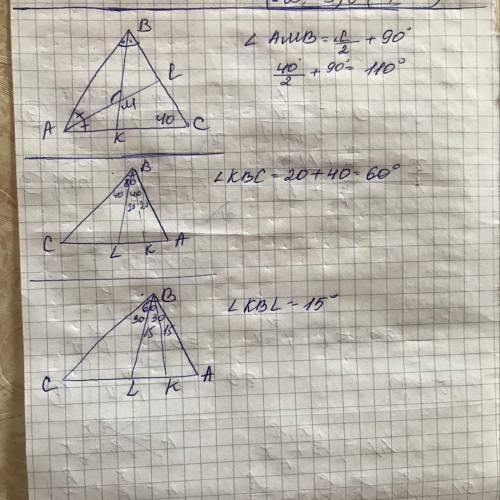 B
∠ AMB = C/2 + 90°
40°/2 + 90° = 110°
L
M
A
K
40
C
B
80
40 40
20 20
∠KBC = 20 + 40 = 60°
C
L
K
A
B
60
30 30
15 15
∠KBL = 15°
C
L
K
A